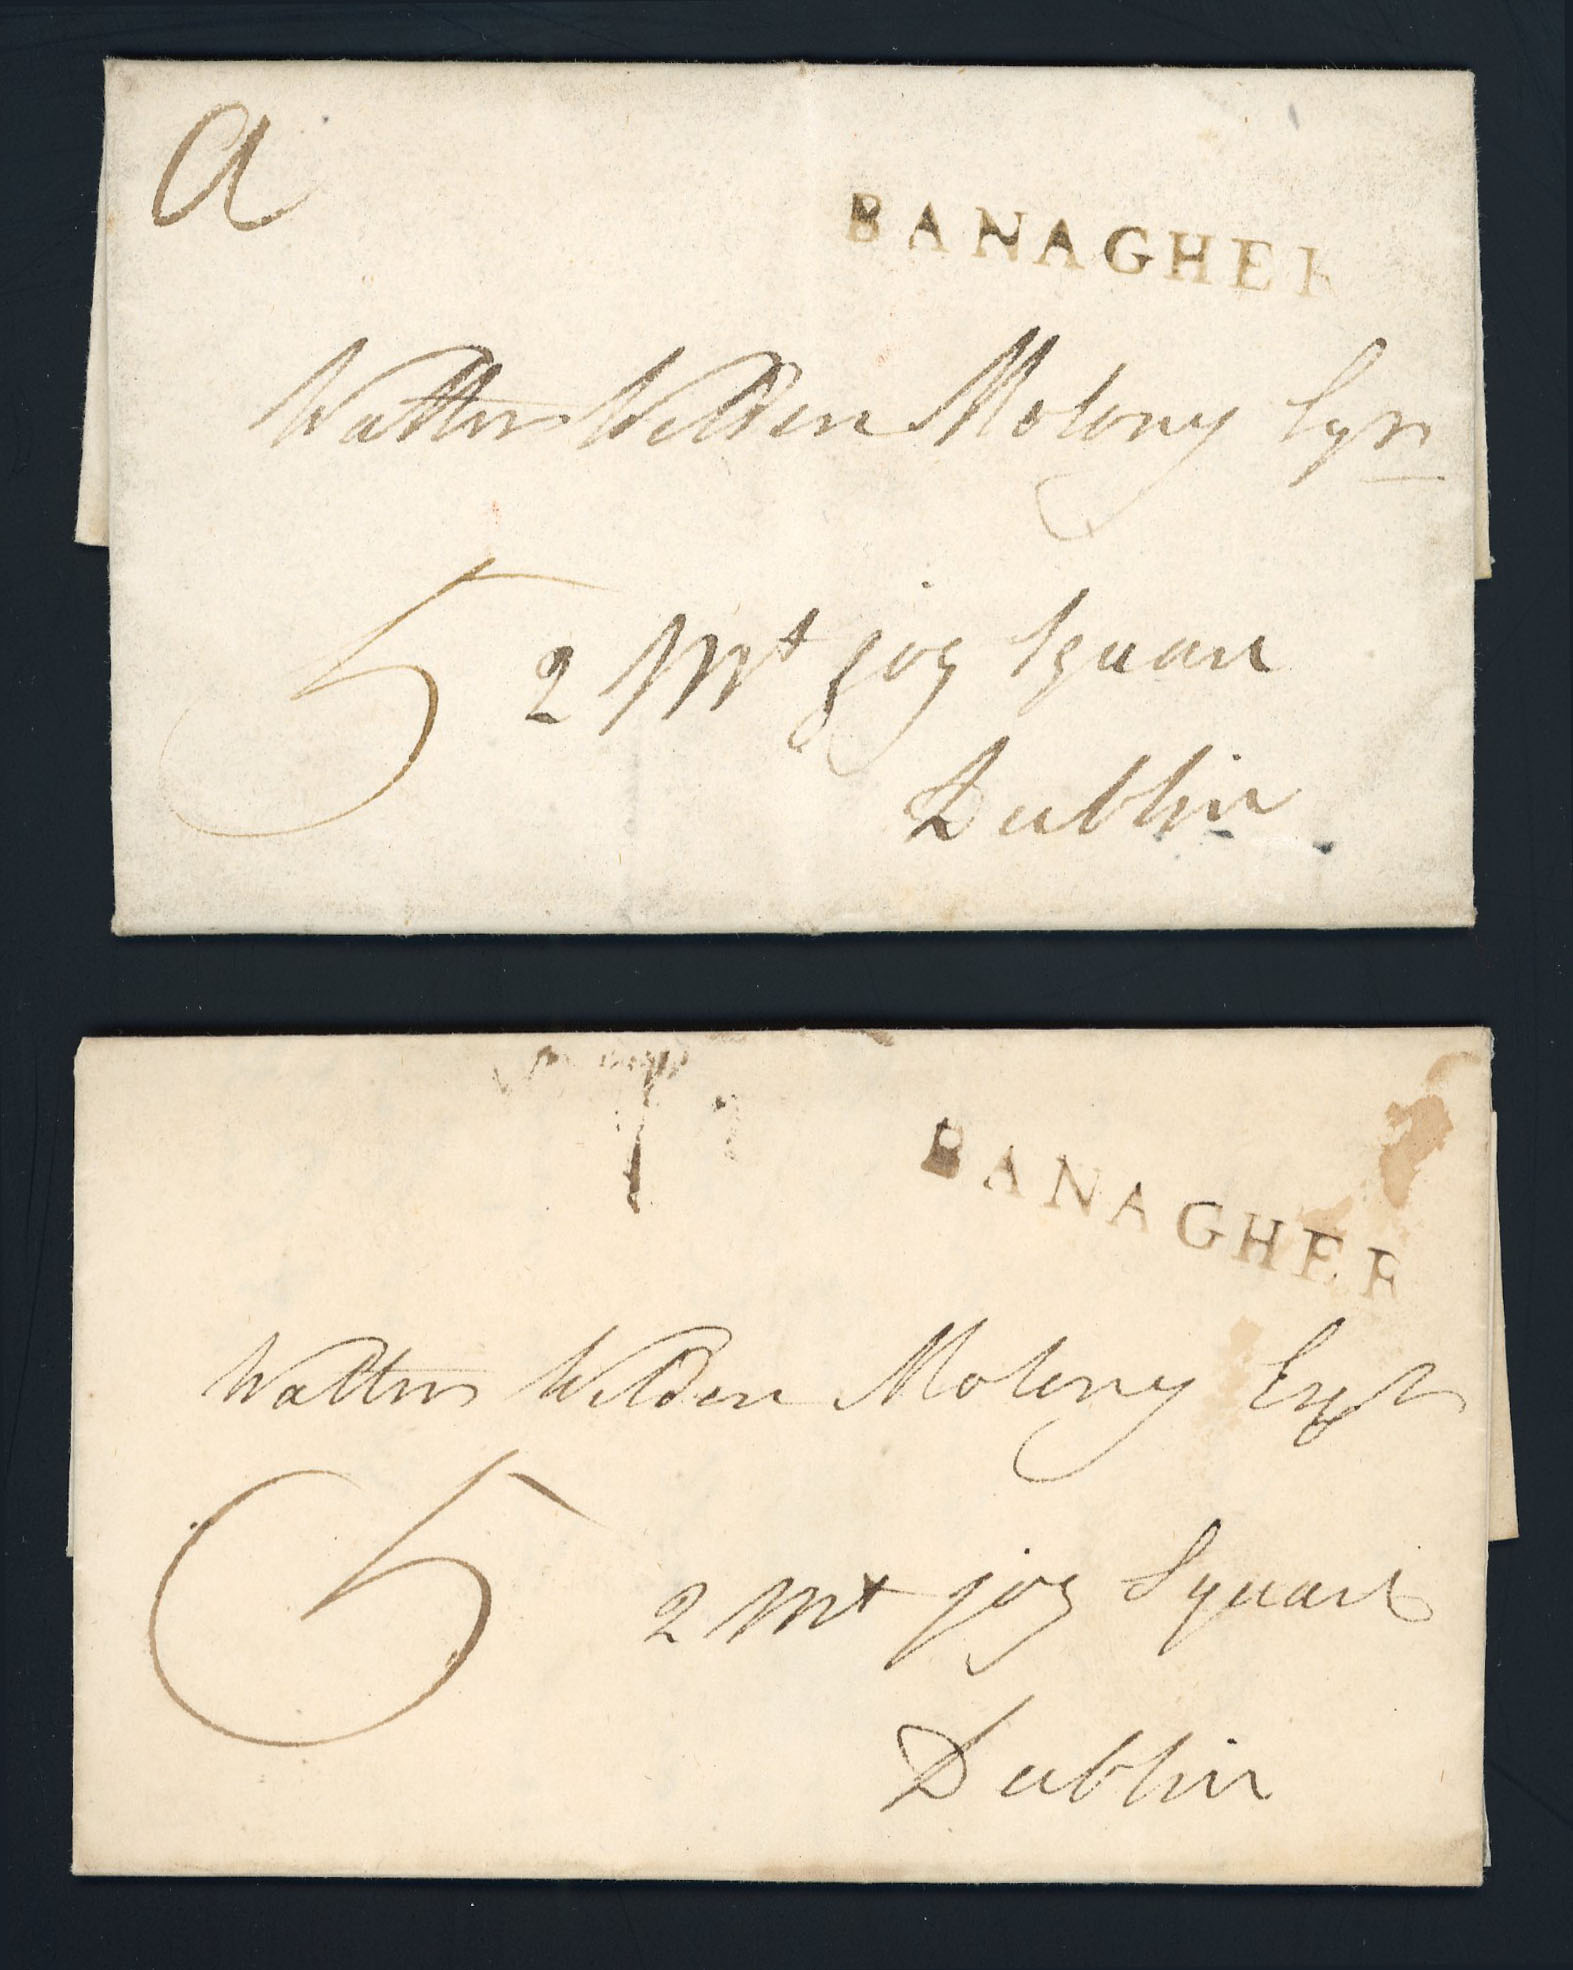 a
BANAGHER
Walter Weldon Molony Esqr
5
2 Mt joy Square
Dublin
BANAGHER
Walter Weldon Molony Esqr
5
2 Mt joy Square
Dublin